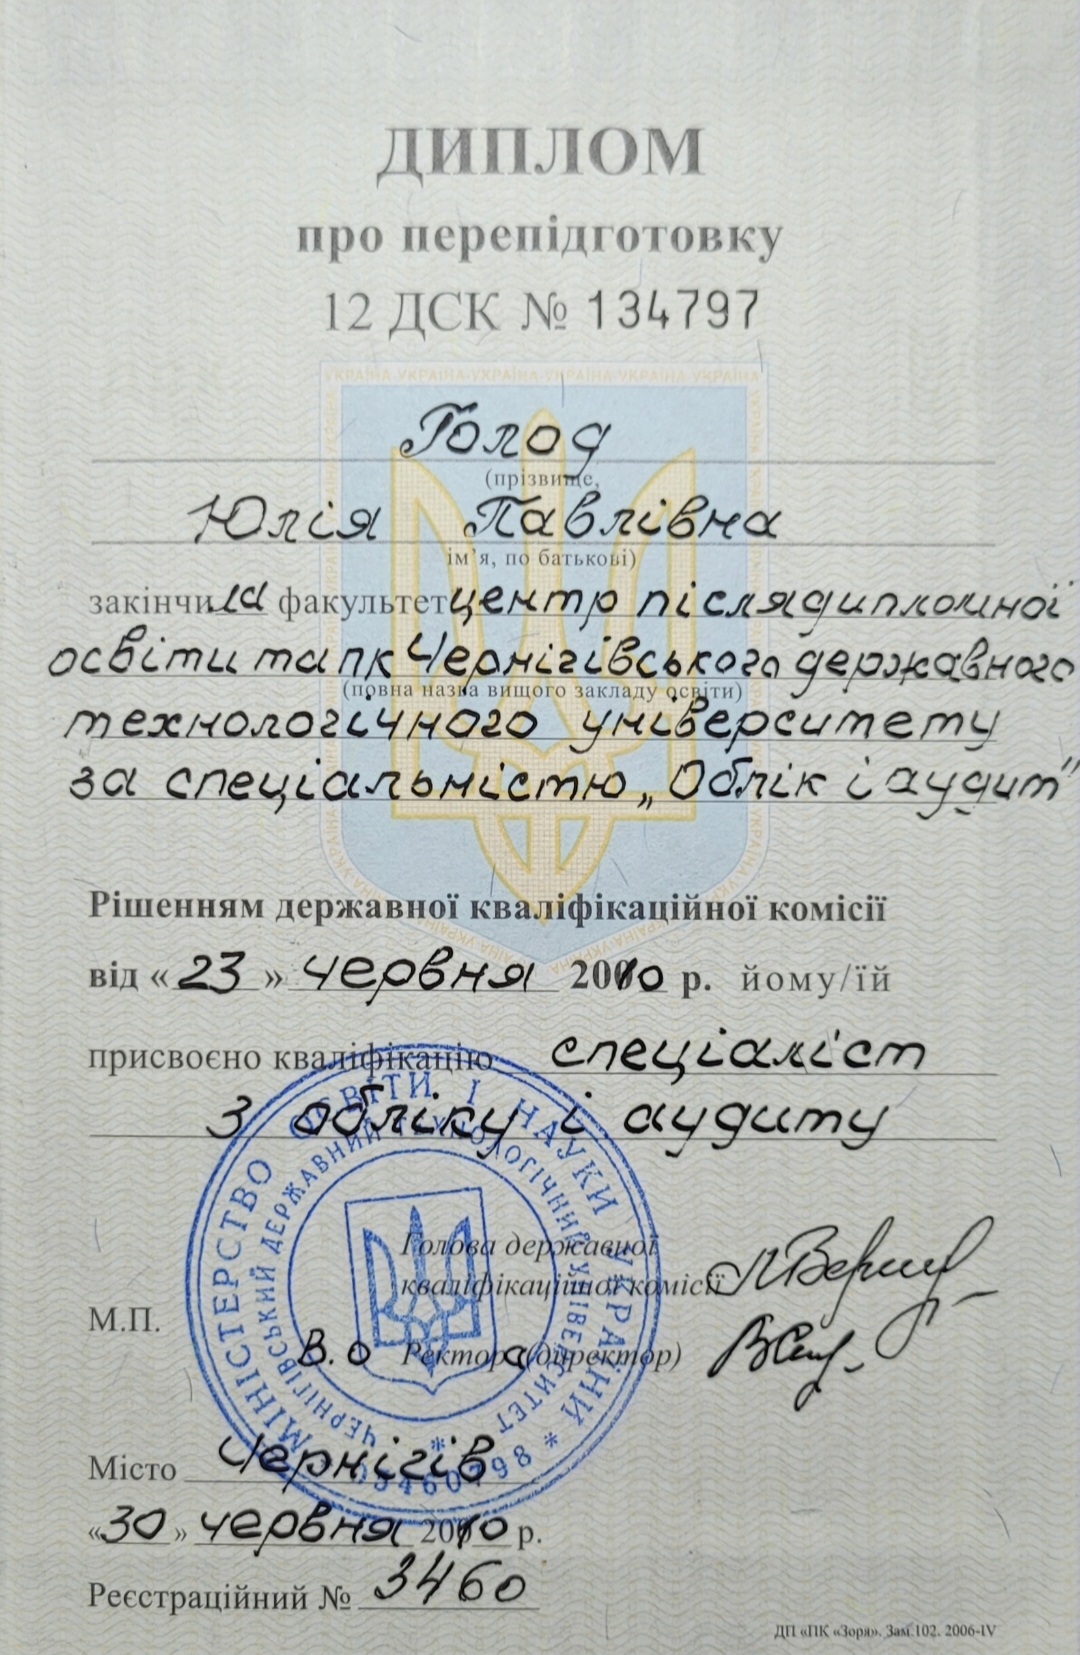 ДИПЛОМ
про перепідготовку
12 ДСК № 134797
Голод
(прізвище,
Юлія Павлівна
ім'я, по батькові)
закінчила факультет центр післядипломної
освіти та пк Чернігівського державного
(повна назва вищого закладу освіти)
технологічного університету
за спеціальністю „Облік і аудит"
Рішенням державної кваліфікаційної комісії
від « 23 » червня 2010 р. йому/їй
присвоєно кваліфікацію спеціаліст
з обліку і аудиту
МІНІСТЕРСТВО ОСВІТИ І НАУКИ УКРАЇНИ *
ЧЕРНІГІВСЬКИЙ ДЕРЖАВНИЙ ТЕХНОЛОГІЧНИЙ УНІВЕРСИТЕТ *
05460798
Голова державної
кваліфікаційної комісії
М.П.
В.о Ректора (директор)
Місто Чернігів
«30» червня 2010 р.
Реєстраційний № 3460
ДП «ПК «Зоря». Зам 102. 2006-IV